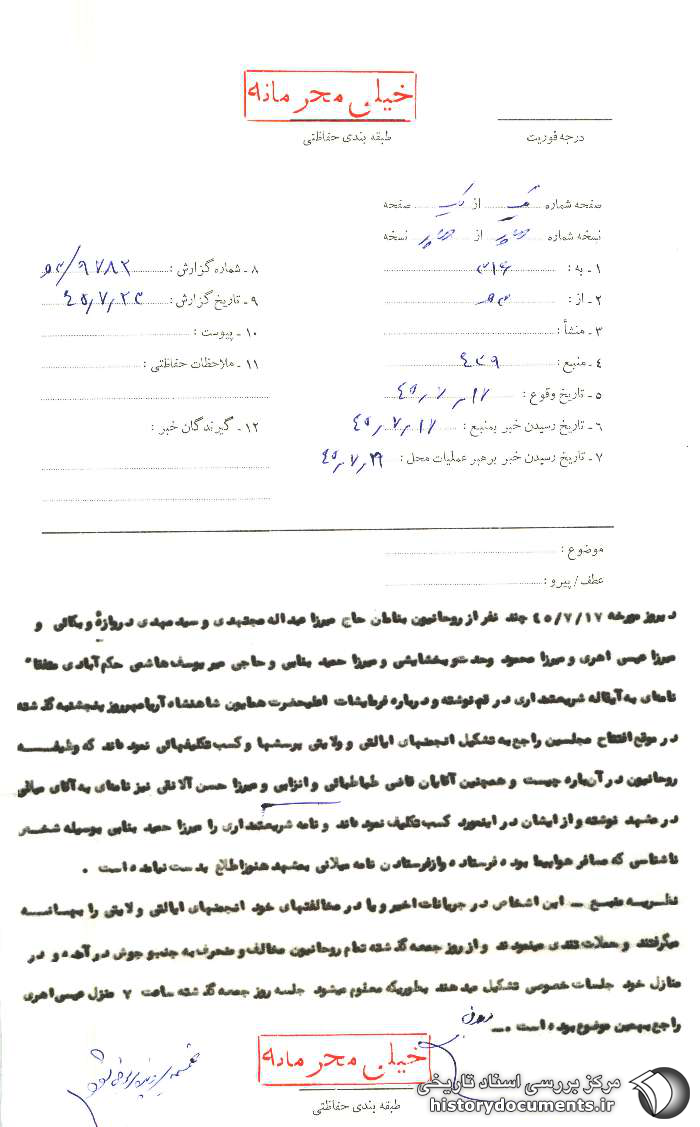 خیلی محرمانه
طبقه بندی حفاظتی
درجه فوریت
صفحه شماره یک از یک صفحه
نسخه شماره از نسخه
۱ ـ به : ۳۱۶
۲ ـ از :
۳ ـ منشأ :
۴ ـ منبع : ۴۳۹
۵ ـ تاریخ وقوع : ۴۵٫۷٫۱۷
۶ ـ تاریخ رسیدن خبر بمنبع : ۴۵٫۷٫۱۷
۷ ـ تاریخ رسیدن خبر برهبر عملیات محل : ۴۵٫۷٫۱۹
۸ ـ شماره گزارش : ۵۳/۹۷۸۲
۹ ـ تاریخ گزارش : ۴۵٫۷٫۲۳
۱۰ ـ پیوست :
۱۱ ـ ملاحظات حفاظتی :
۱۲ ـ گیرندگان خبر :
موضوع :
عطف/پیرو :
دیروز مورخه ۴۵/۷/۱۷ چند نفر از روحانیون بنامان حاج میرزا عبداله مجتهدی و سید مهدی دروازهٔ و یکانی و
میرزا عیسی اهری و میرزا محمود وحدت و بخشایشی و میرزا حمید بنابی و حاجی میر یوسف هاشمی حکم‌آبادی متفقا"
نامه‌ای به آیةاله شریعتمداری در قم نوشته و درباره فرمایشات اعلیحضرت همایون شاهنشاه آریامهر روز پنجشنبه گذشته
در موقع افتتاح مجلسین راجع به تشکیل انجمنهای ایالتی و ولایتی پرسشها و کسب تکلیفهائی نموده‌اند که وظیفـــه
روحانیون در آن‌باره چیست و همچنین آقایان قاضی طباطبائی و انزابی و میرزا حسن آلانقی نیز نامه‌ای به آقای میلانی
در مشهد نوشته و از ایشان در اینمورد کسب تکلیف نموده‌اند و نامه شریعتمداری را میرزا حمید بنابی بوسیله شخص
ناشناسی که مسافر هواپیما بوده فرستاده و از فرستادن نامه میلانی بمشهد هنوز اطلاع بدست نیامده است .
نظریـه منبـع ـ این اشخاص در جریانات اخیر و یا در مخالفتهای خود انجمنهای ایالتی ولایتی را بهانـه
میگرفتند و حملات تندی مینمودند و از روز جمعه گذشته تمام روحانیون مخالف و منحرف به جنب و جوش درآمده و در
منازل خود جلسات خصوصی تشکیل میدهند بطوریکه معلوم میشود جلسه روز جمعه گذشته ساعت ۷ منزل عیسی اهری
راجع بهمین موضوع بوده است .ـ
خیلی محرمانه
طبقه بندی حفاظتی
مرکز بررسی اسناد تاریخی
historydocuments.ir